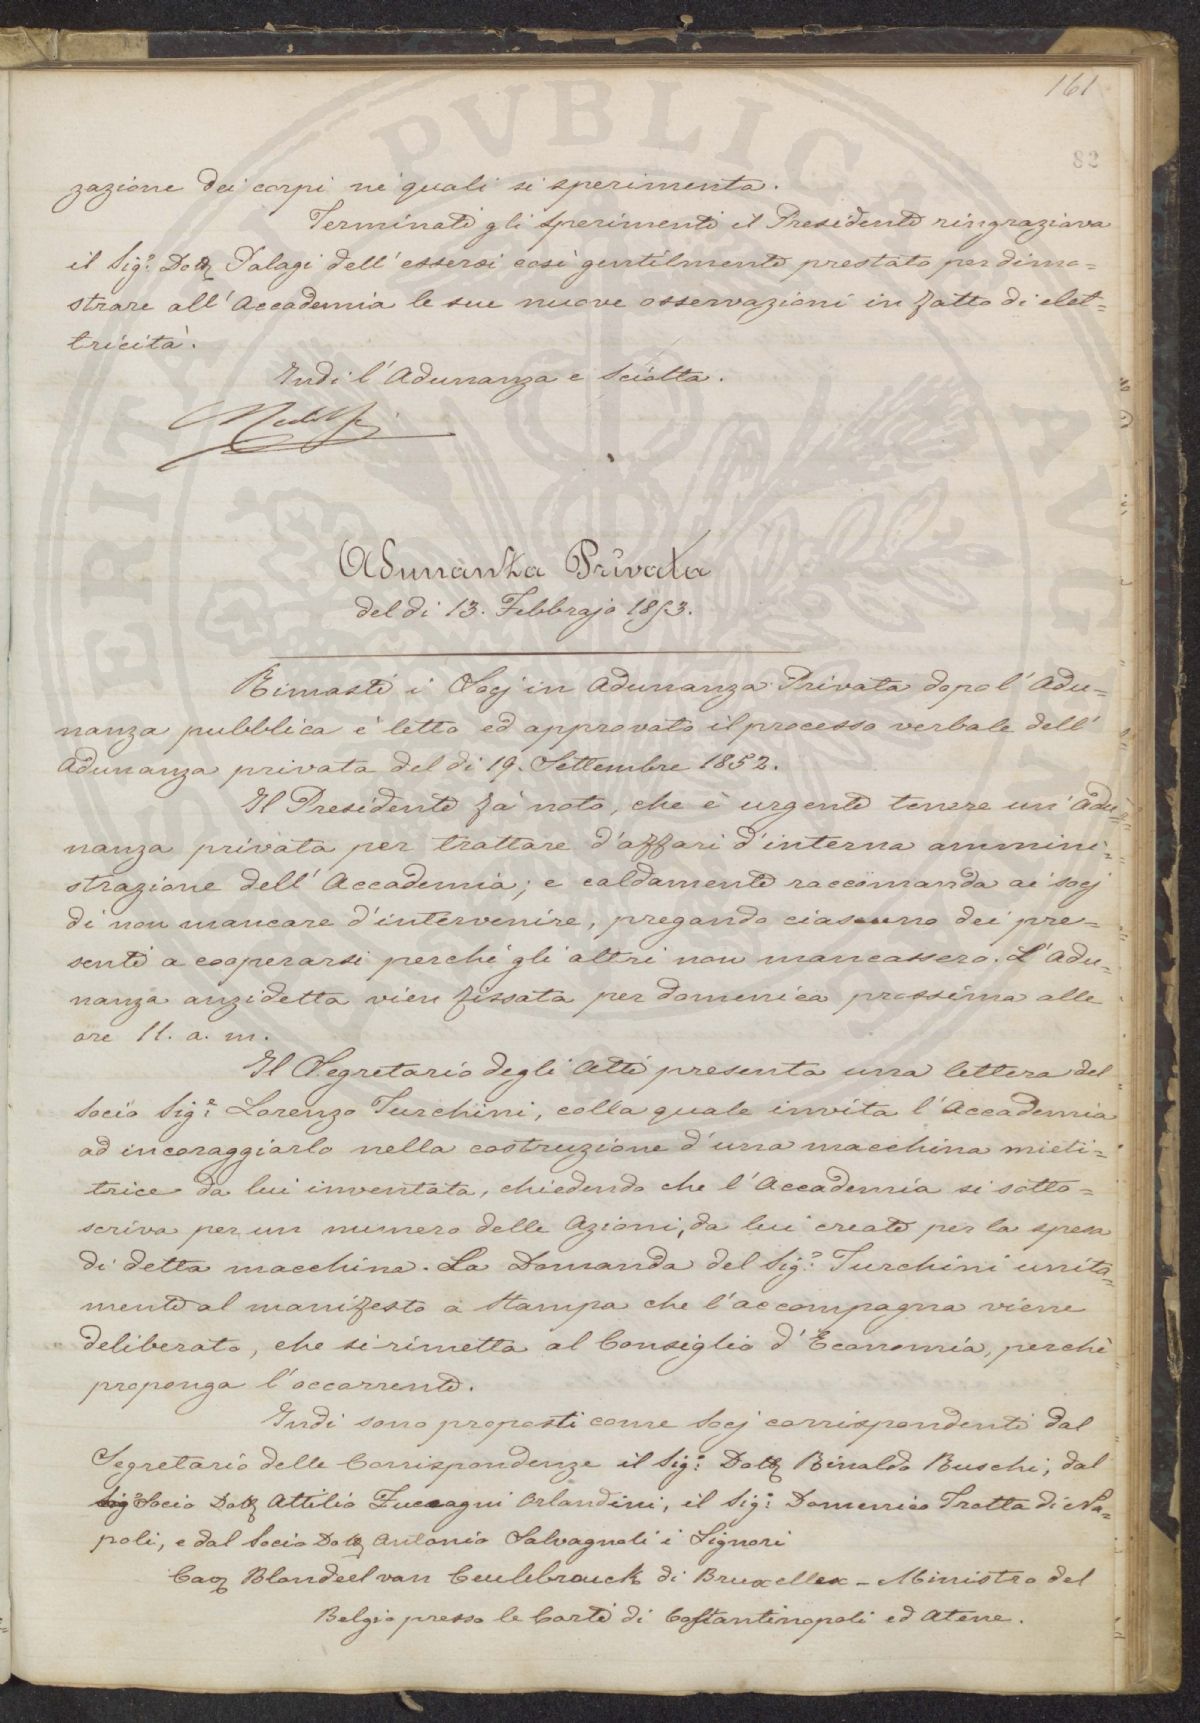 161
82
zazione dei corpi ne' quali si sperimenta.
Terminati gli sperimenti il Presidente ringraziava
il Sigr. Dott. Palagi dell' essersi così gentilmente prestato per dimo=
strare all' Accademia le sue nuove osservazioni in fatto di elet=
tricità.
Indi l' Adunanza e sciolta.
Adunanza Privata
del dì 13. Febbrajo 1853.
Rimasti i Socj in Adunanza Privata dopo l' Adu=
nanza pubblica è letto ed approvato il processo verbale dell'
Adunanza privata del dì 19. Settembre 1852.
Il Presidente fà noto, che è urgente tenere un' Adu=
nanza privata per trattare d' affari d' interna ammini=
strazione dell' Accademia; e caldamente raccomanda ai socj
di non mancare d' intervenire, pregando ciascuno dei pre=
senti a cooperarsi perchè gli altri non mancassero. L' Adu=
nanza anzidetta vien fissata per domenica prossima alle
ore 11. a. m.
Il Segretario degli Atti presenta una lettera del
Socio Sigr. Lorenzo Turchini, colla quale invita l' Accademia
ad incoraggiarlo nella costruzione d' una macchina mieti=
trice da lui inventata, chiedendo che l' Accademia si sotto=
scriva per un numero delle Azioni, da lui create per la spesa
di detta macchina. La Domanda del Sigr. Turchini unita=
mente al manifesto a stampa che l' accompagna viene
deliberato, che si rimetta al Consiglio d' Economia, perchè
proponga l' occorrente.
Indi sono proposti come Socj corrispondenti dal
Segretario delle Corrispondenze il Sigr. Dott. Rinaldo Ruschi, dal
Socio Dott. Attilio Zuccagni Orlandini, il Sigr. Domenico Trotta di Na=
poli, e dal Socio Dott. Antonio Salvagnoli i Signori
Cav. Blondeel van Ceulebrouck di Bruxelles - Ministro del
Belgio presso le Corti di Costantinopoli ed Atene.